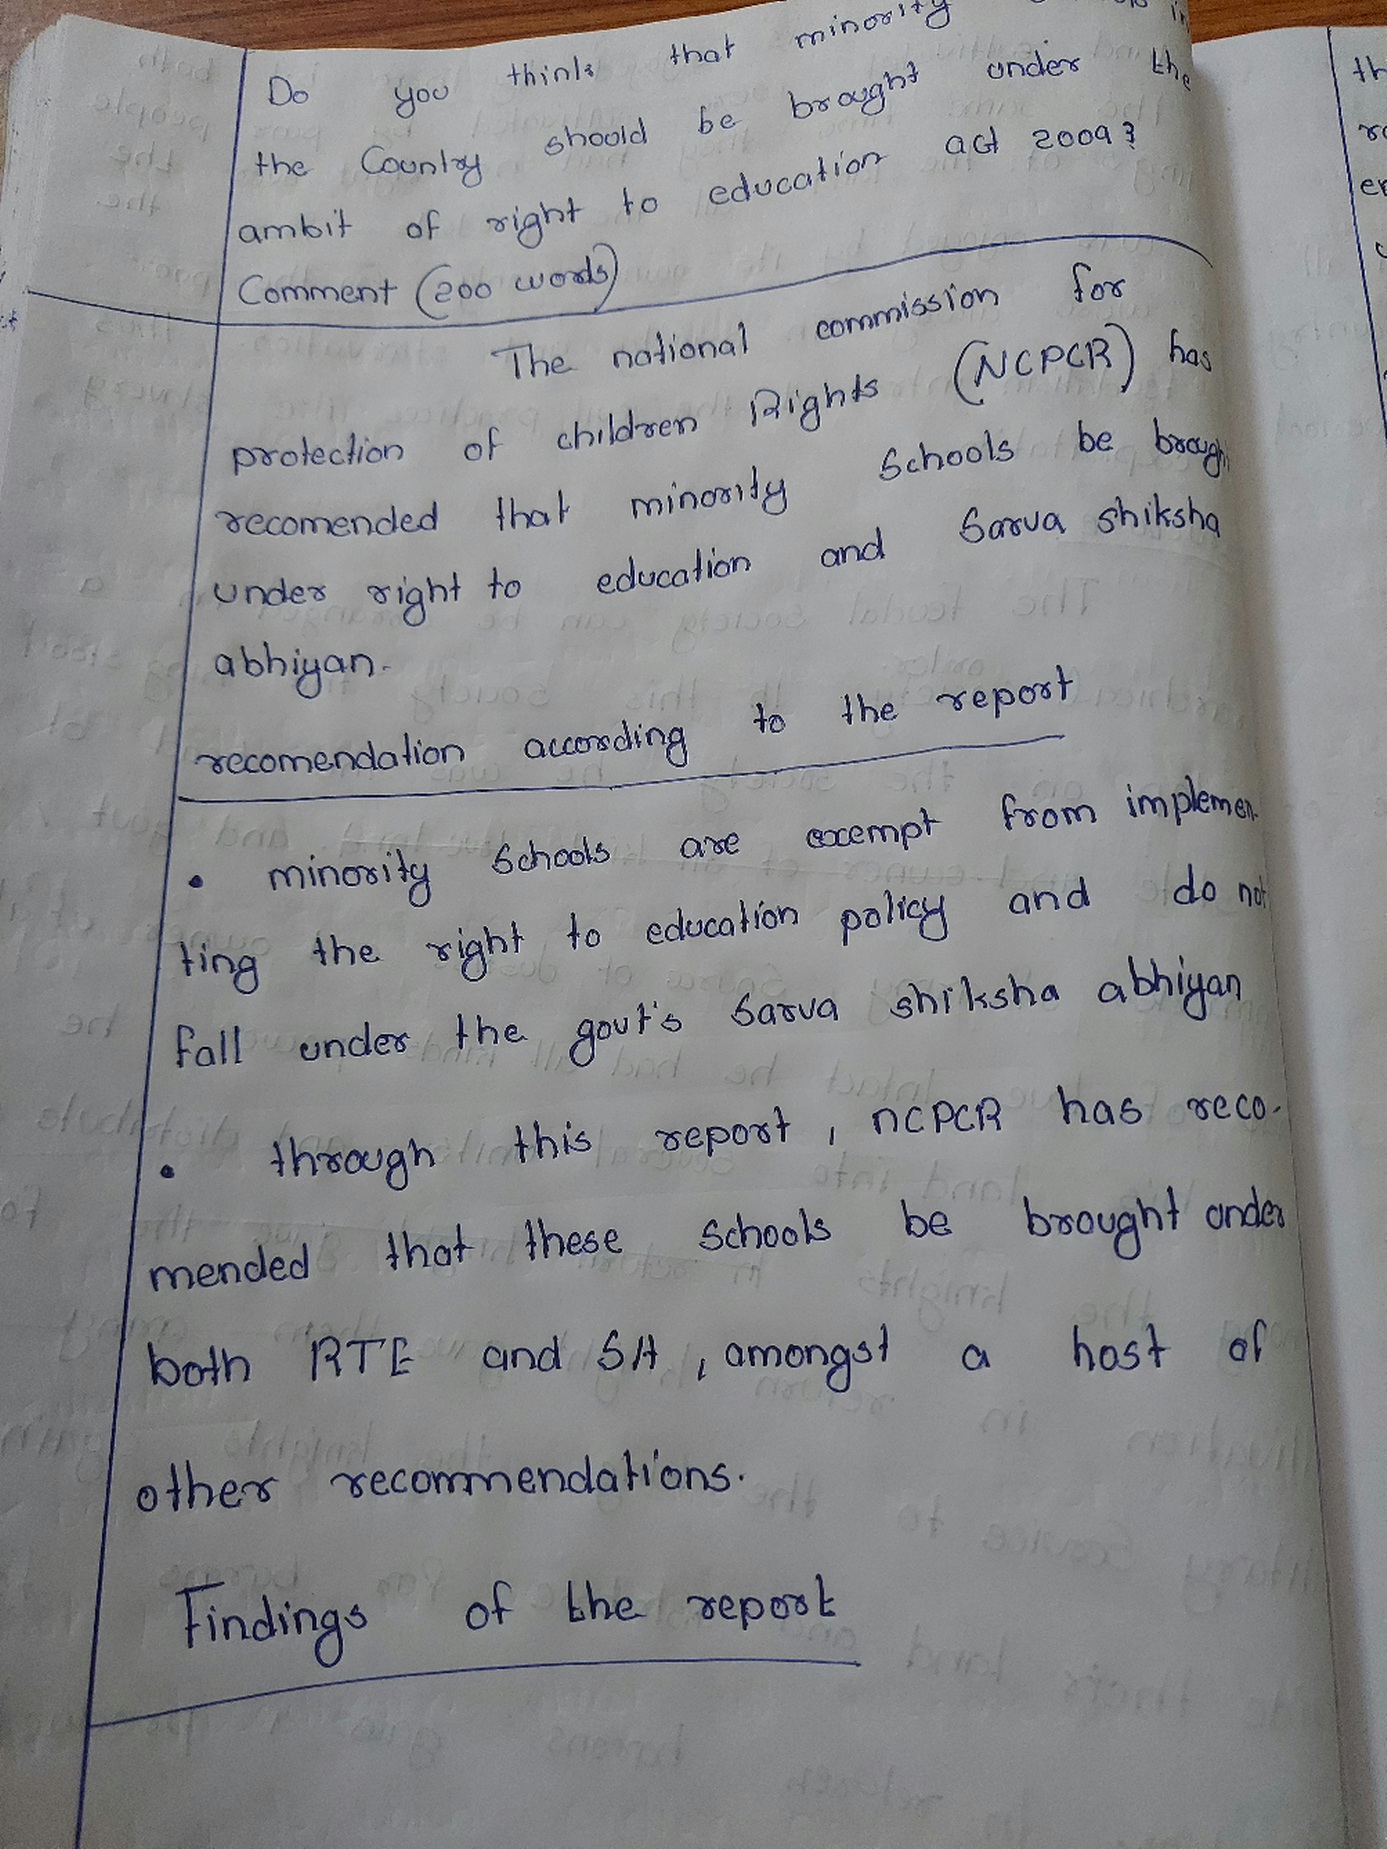 Do you think that minority in
the Country should be brought under the
ambit of right to education act 2009?
Comment (200 words)
The national commission for
protection of children Rights (NCPCR) has
recomended that minority Schools be brough
under right to education and Sarva shiksha
abhiyan.
recomendation according to the report
• minority Schools are exempt from implemen-
ting the right to education policy and do not
fall under the govt's Sarva shiksha abhiyan
• through this report, NCPCR has reco-
mended that these Schools be brought under
both RTE and SA, amongst a host of
other recommendations.
Findings of the report